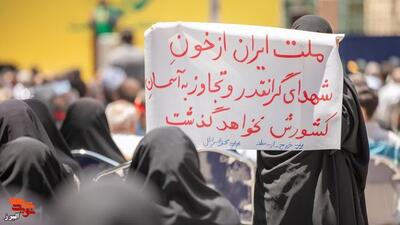 ملت ایران از خون
شهدای گرانقدر و تجاوز به آسمان
کشورش نخواهد گذشت